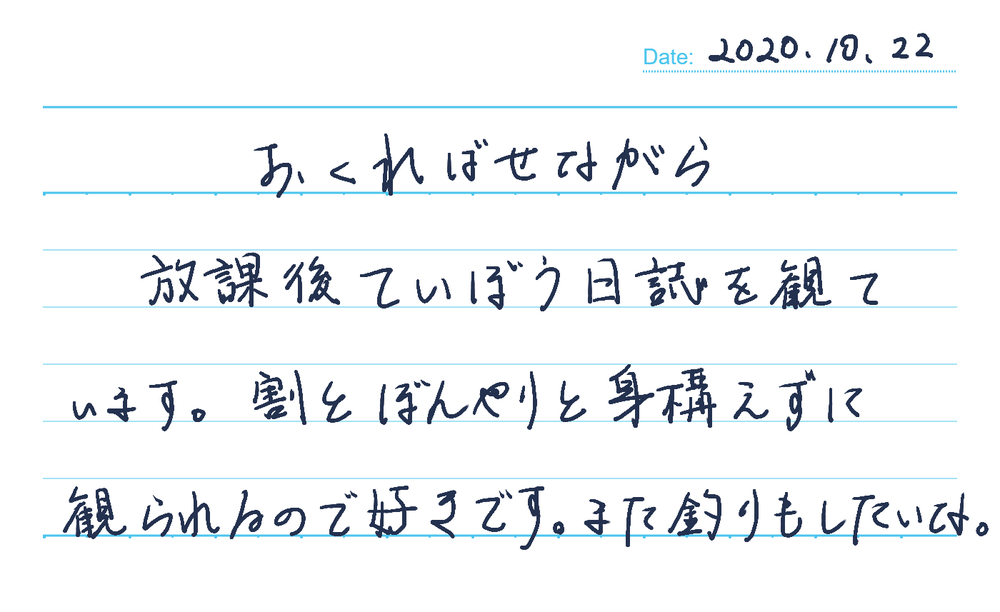 Date: 2020.10.22
おくればせながら
放課後ていぼう日誌を観て
います。割とぼんやりと身構えずに
観られるので好きです。また釣りもしたいな。